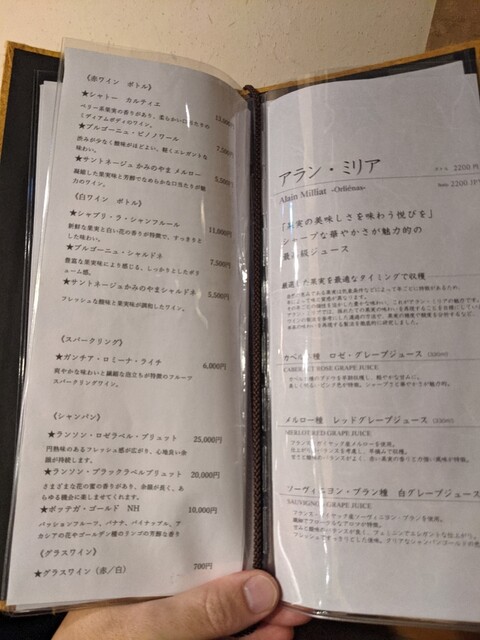 《赤ワイン ボトル》
★シャトー カルティエ 12,000円
ベリー系果実の香りがあり、柔らかい口当たりのミディアムボディのワイン。
★ブルゴーニュ・ピノノワール 7,500円
渋みが少なく酸味がほどよい、軽くエレガントな味わい。
★サントネージュかみのやま メルロー 5,500円
凝縮した果実味と芳醇でなめらかな口当たりが魅力のワイン。
《白ワイン ボトル》
★シャブリ・ラ・シャンフルール 11,000円
新鮮な果実と白い花の香りが特徴で、すっきりとした味わい。
★ブルゴーニュ・シャルドネ 7,500円
豊富な果実味により感じる、しっかりとしたボリューム感。
★サントネージュかみのやまシャルドネ 5,500円
フレッシュな酸味と果実味が調和したワイン。
《スパークリング》
★ガンチア・ロミーナ・ライチ 6,000円
爽やかな味わいと繊細な泡立ちが特徴のフルーツスパークリングワイン。
《シャンパン》
★ランソン・ロゼラベル・ブリュット 25,000円
円熟味のあるフレッシュ感が広がり、心地良い余韻が持続します。
★ランソン・ブラックラベルブリュット 20,000円
さまざまな花の蜜の香りがあり、余韻が長く、あらゆる機会に楽しませてくれます。
★ボッテガ・ゴールド NH 10,000円
パッションフルーツ、バナナ、パイナップル、アカシアの花やゴールデン種のリンゴの芳醇な香り
《グラスワイン》
★グラスワイン(赤/白) 700円
アラン・ミリア 2200円
Alain Milliat -Orliénas- 2200 JP
「果実の美味しさを味わう悦びを」
シャープな華やかさが魅力的の
最高級ジュース
厳選した果実を最適なタイミングで収穫
カベルネ種 ロゼ・グレープジュース (330ml)
CABERNET ROSE GRAPE JUICE
メルロー種 レッドグレープジュース (330ml)
MERLOT RED GRAPE JUICE
ソーヴィニヨン・ブラン種 白グレープジュース
SAUVIGNON GRAPE JUICE